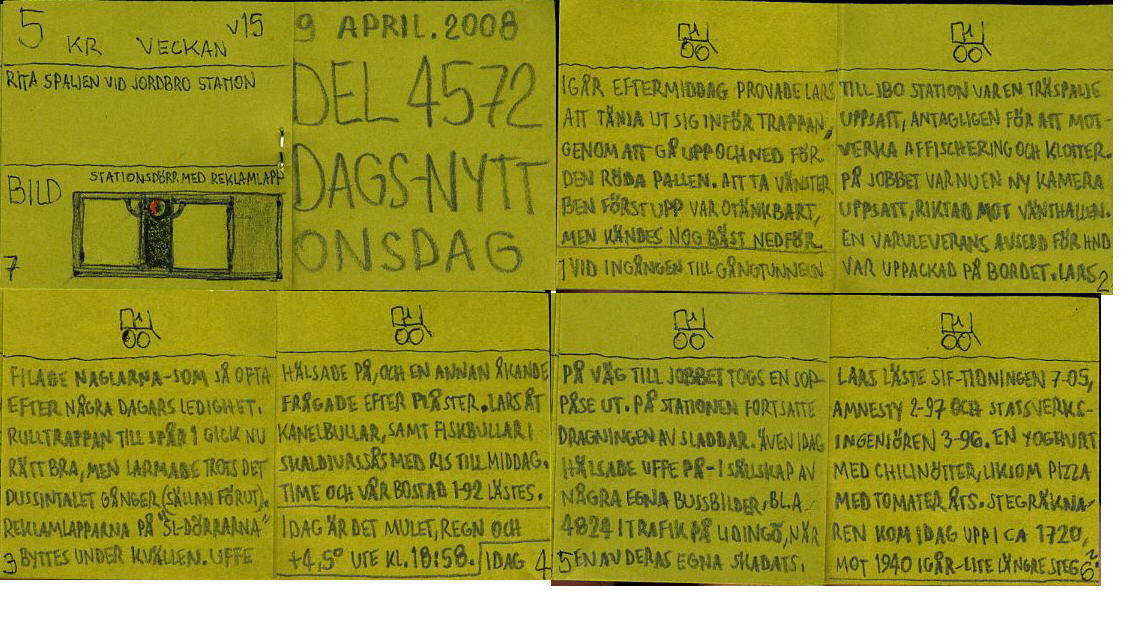 5 KR VECKAN v15
RITA SPALJEN VID JORDBRO STATION
STATIONSDÖRR MED REKLAMLAPP
BILD
7
9 APRIL. 2008
DEL 4572
DAGS-NYTT
ONSDAG
IGÅR EFTERMIDDAG PROVADE LARS
ATT TÄNJA UT SIG INFÖR TRAPPAN,
GENOM ATT GÅ UPP OCH NED FÖR
DEN RÖDA PALLEN. ATT TA VÄNSTER
BEN FÖRST UPP VAR OTÄNKBART,
MEN KÄNDES NOG BÄST NEDFÖR.
1 VID INGÅNGEN TILL GÅNGTUNNELN
TILL JBO STATION VAR EN TRÄSPALJE
UPPSATT, ANTAGLIGEN FÖR ATT MOT-
VERKA AFFISCHERING OCH KLOTTER.
PÅ JOBBET VAR NU EN NY KAMERA
UPPSATT, RIKTAD MOT VÄNTHALLEN.
EN VARULEVERANS AVSEDD FÖR HND
VAR UPPACKAD PÅ BORDET. LARS 2
FILADE NAGLARNA-SOM SÅ OFTA
EFTER NÅGRA DAGARS LEDIGHET.
RULLTRAPPAN TILL SPÅR 1 GICK NU
RÄTT BRA, MEN LARMADE TROTS DET
DUSSINTALET GÅNGER (SÄLLAN FÖRUT).
REKLAMLAPPARNA PÅ "SL-DÖRRARNA"
3 BYTTES UNDER KVÄLLEN. UFFE
HÄLSADE PÅ, OCH EN ANNAN ÅKANDE
FRÅGADE EFTER PLÅSTER. LARS ÅT
KANELBULLAR, SAMT FISKBULLAR I
SKALDJURSSÅS MED RIS TILL MIDDAG.
TIME OCH VÅR BOSTAD 1-92 LÄSTES.
IDAG ÄR DET MULET, REGN OCH
+4,5° UTE KL. 18:58. IDAG 4
PÅ VÄG TILL JOBBET TOGS EN SOP-
PÅSE UT. PÅ STATIONEN FORTSATTE
DRAGNINGEN AV SLADDAR. ÄVEN IDAG
HÄLSADE UFFE PÅ-I SÄLLSKAP AV
NÅGRA EGNA BUSSBILDER, BL.A
4824 I TRAFIK PÅ LIDINGÖ, NÄR
5 EN AV DERAS EGNA SKADATS.
LARS LÄSTE SIF-TIDNINGEN 7-05,
AMNESTY 2-97 OCH STATSVERKS-
INGENIÖREN 3-96. EN YOGHURT
MED CHILINÖTTER, LIKSOM PIZZA
MED TOMATER ÅTS. STEGRÄKNA-
REN KOM IDAG UPP I CA 1720,
MOT 1940 IGÅR-LITE LÄNGRE STEG? 6